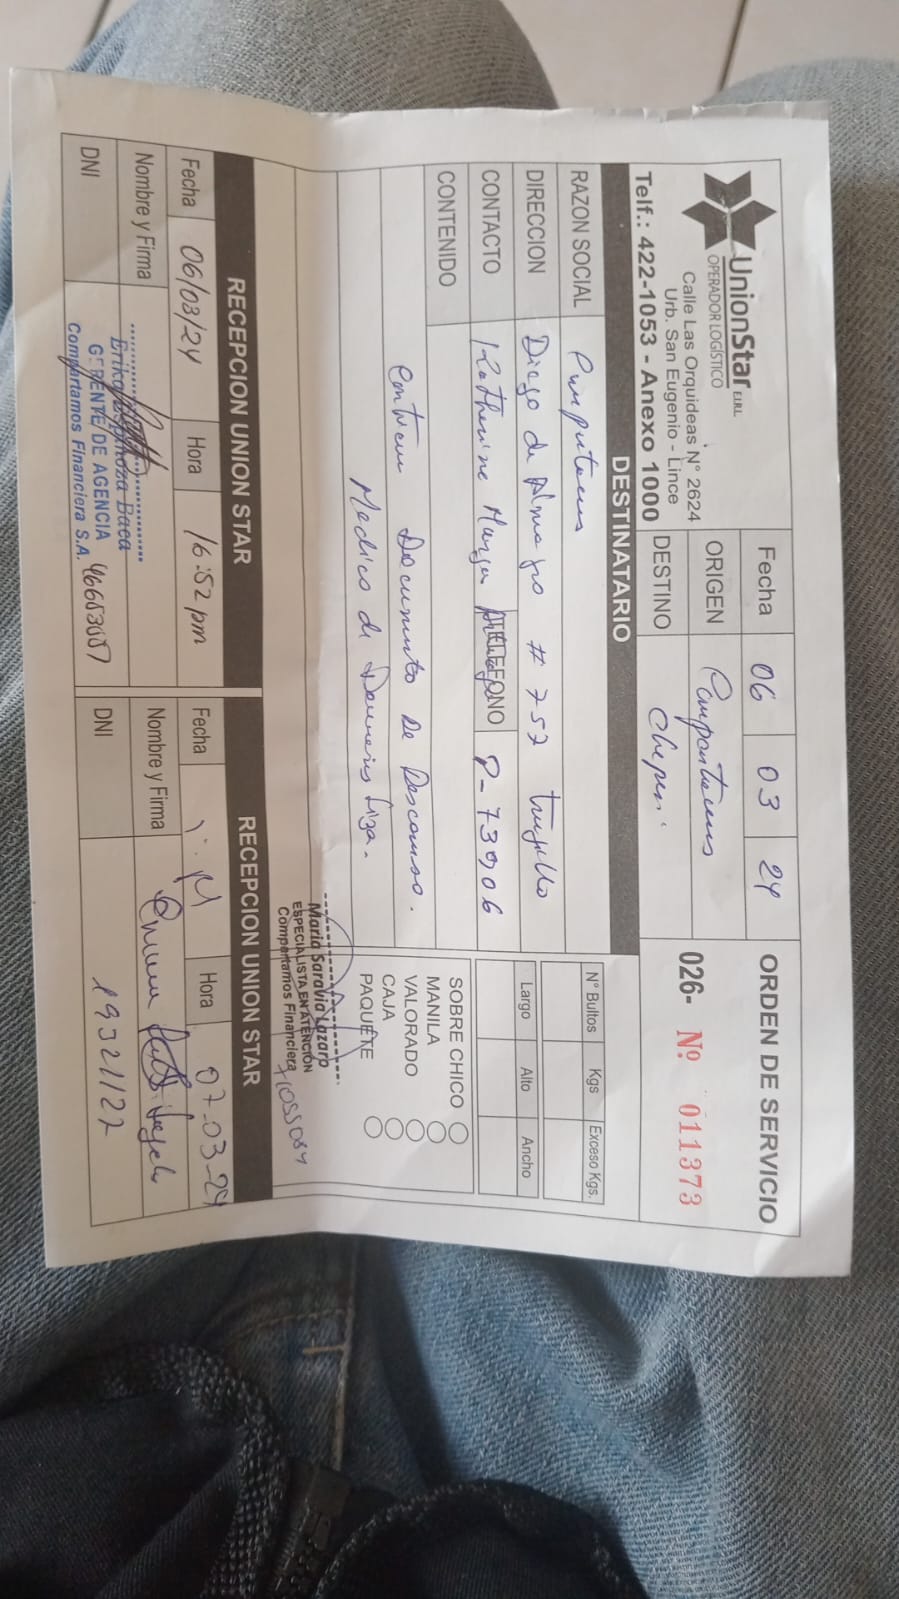 UnionStar E.I.R.L.
OPERADOR LOGÍSTICO
Calle Las Orquideas N° 2624
Urb. San Eugenio - Lince
Telf.: 422-1053 - Anexo 1000
Fecha 06 03 24
ORIGEN Compartamos
DESTINO Chepen
ORDEN DE SERVICIO
026- Nº 011373
DESTINATARIO
RAZON SOCIAL Compartamos
DIRECCION Diego de Almagro # 757 Trujillo
CONTACTO Katherine TELEFONO P-73906
CONTENIDO
Contiene Documento De Descanso
Medico de Damaris Liza.
N° Bultos Kgs Exceso Kgs.
Largo Alto Ancho
SOBRE CHICO
MANILA
VALORADO
CAJA
PAQUETE
Maria Saravia Lazaro
ESPECIALISTA EN ATENCIÓN
Compartamos Financiera
RECEPCION UNION STAR
Fecha 06/03/24 Hora 16:52 pm
Nombre y Firma
Baca
GERENTE DE AGENCIA
Compartamos Financiera S.A.
DNI
RECEPCION UNION STAR
Fecha Hora 07-03-24
Nombre y Firma
DNI 19321127